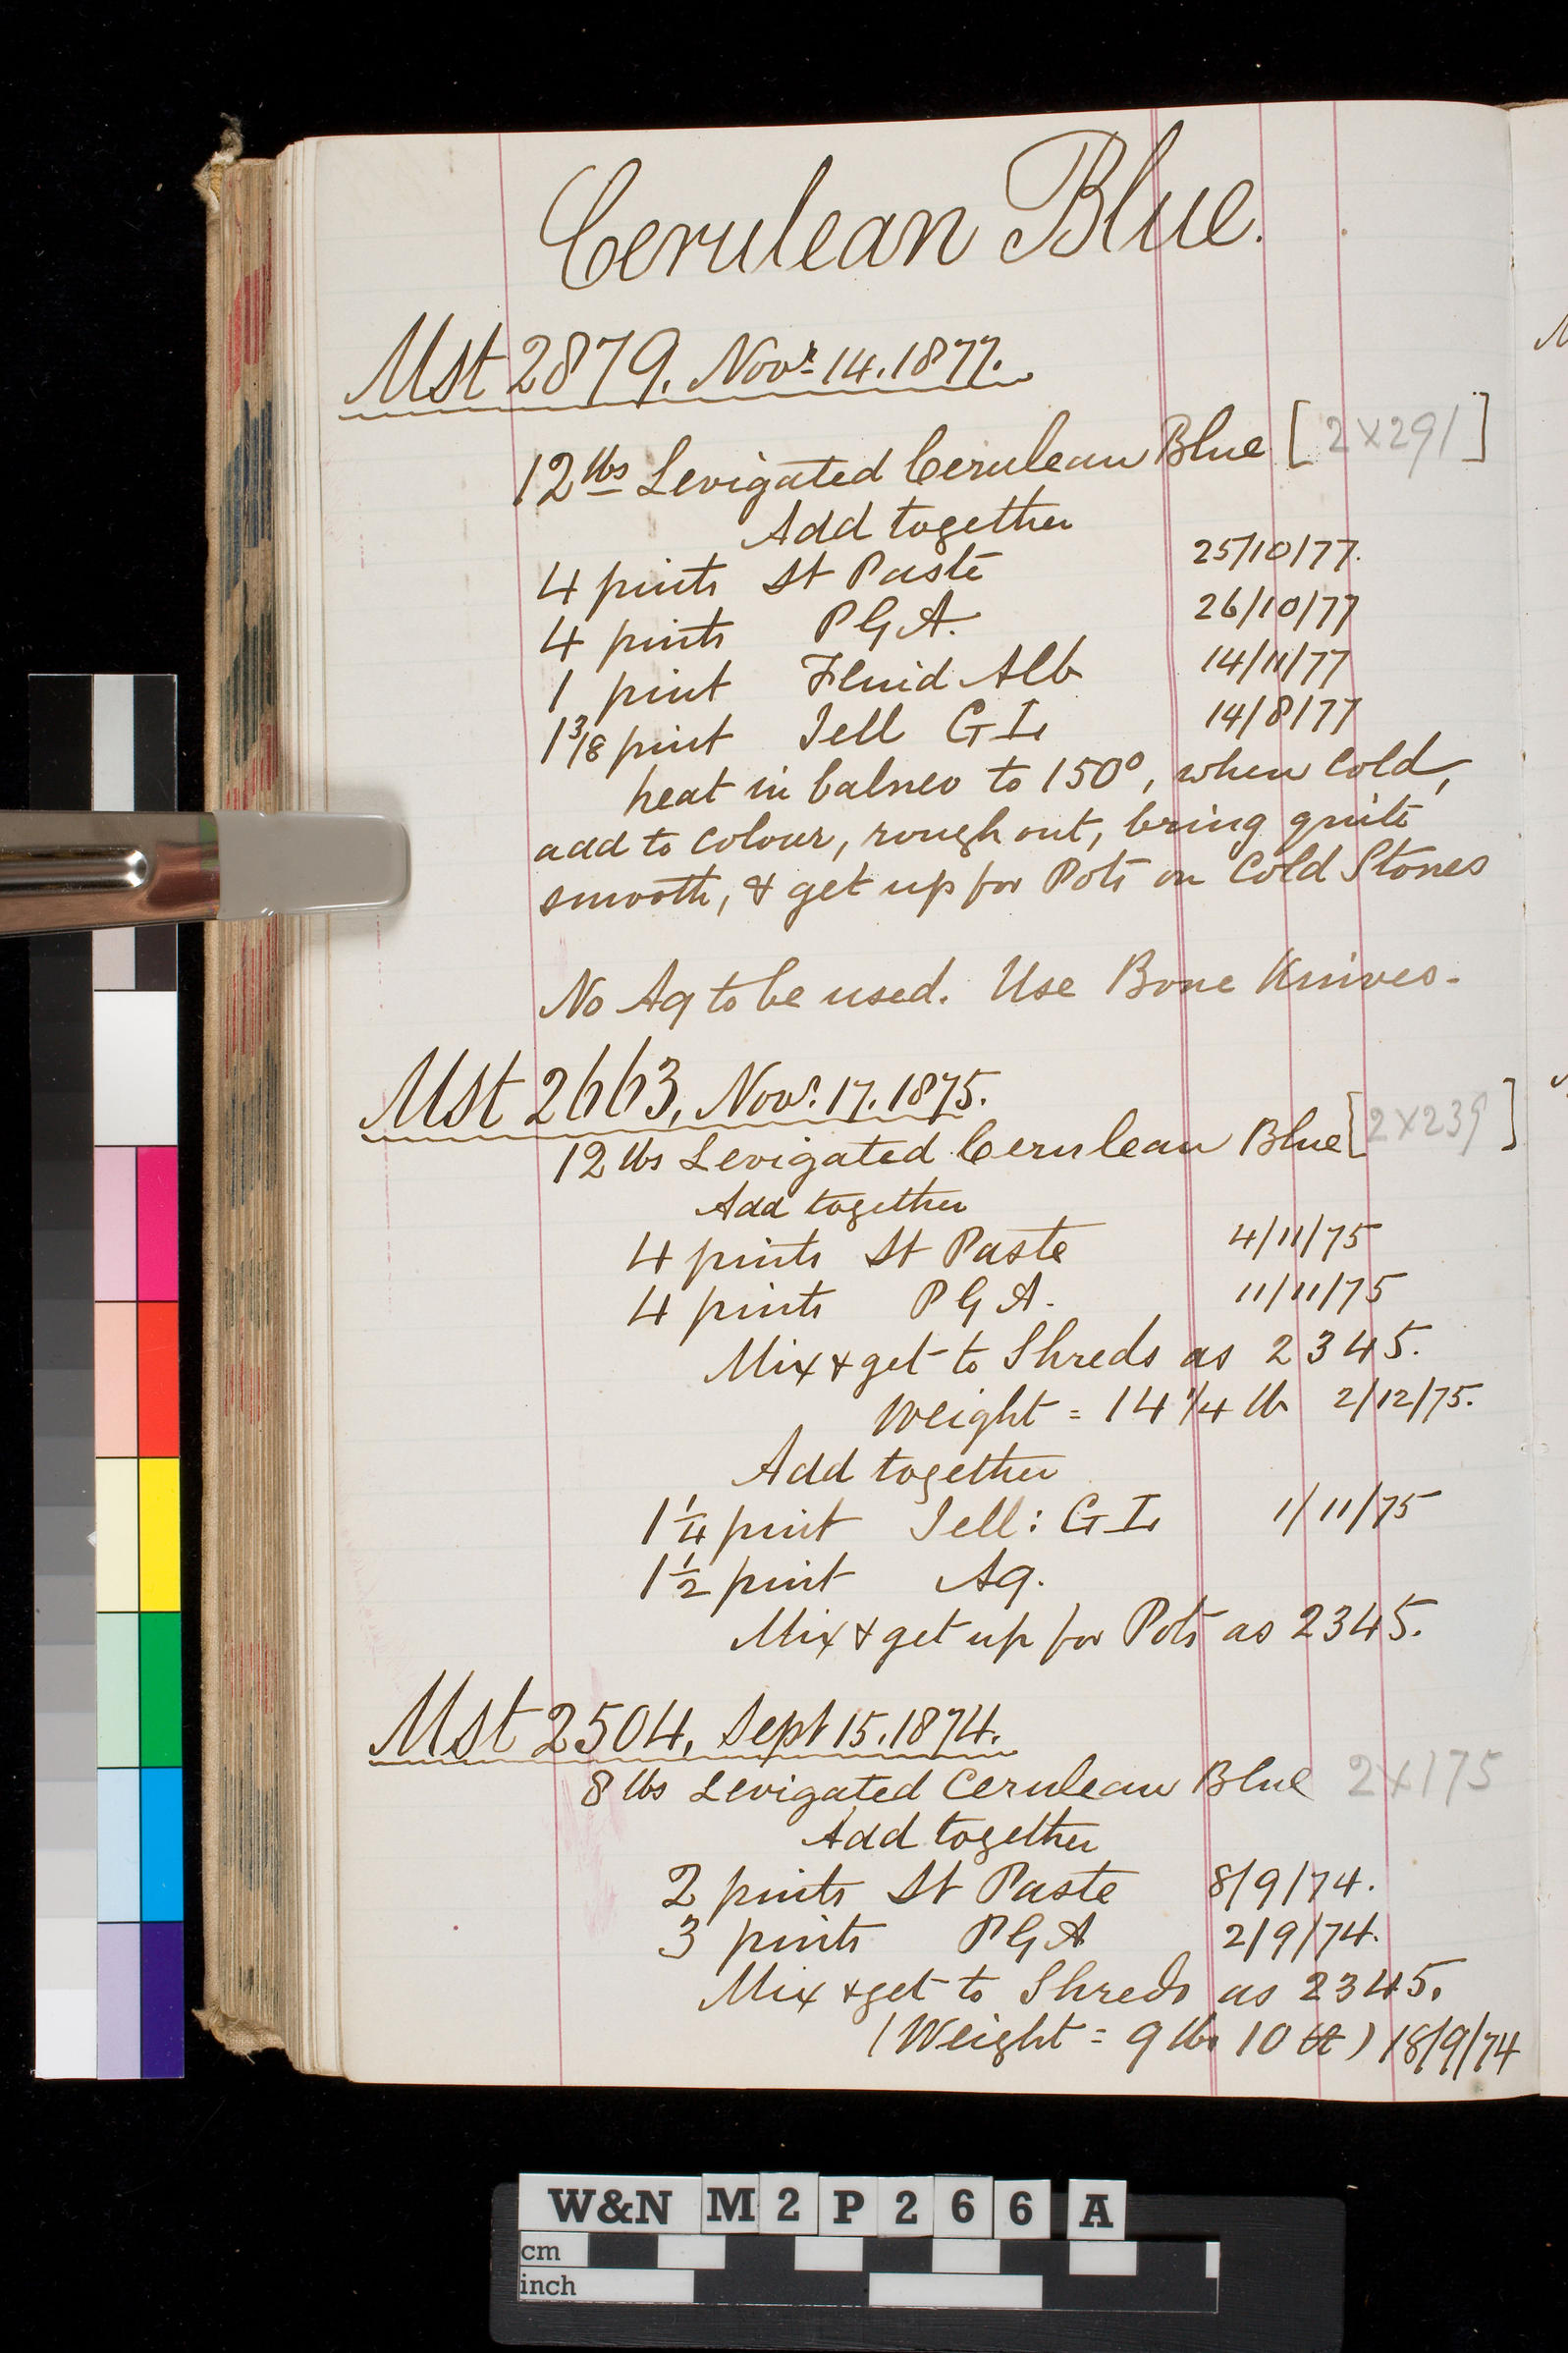 Cerulean Blue.
Mst 2879. Novr 14. 1877.
12 lbs Levigated Cerulean Blue [2X291]
Add together
4 pints St Paste 25/10/77.
4 pints PGA. 26/10/77
1 pint Fluid Alb 14/11/77
1 3/8 pint Jell GL 14/8/77
heat in balneo to 150°, when cold,
add to colour, rough out, bring quite
smooth, & get up for Pots on Cold Stones
No Aq to be used. Use Bone Knives.
Mst 2663, Novr. 17. 1875.
12 lbs Levigated Cerulean Blue [2X239]
Add together
4 pints St Paste 4/11/75
4 pints PGA. 11/11/75
Mix & get to Shreds as 2345.
Weight = 14 1/4 lb 2/12/75.
Add together
1 1/4 pint Jell: GL 1/11/75
1 1/2 pint Aq.
Mix & get up for Pots as 2345.
Mst 2504, Sept 15. 1874.
8 lbs Levigated Cerulean Blue 2X175
Add together
2 pints St Paste 8/9/74.
3 pints PGA 2/9/74.
Mix & get to Shreds as 2345.
(Weight = 9 lbs 10 ) 18/9/74
W&N M2P266A
cm
inch